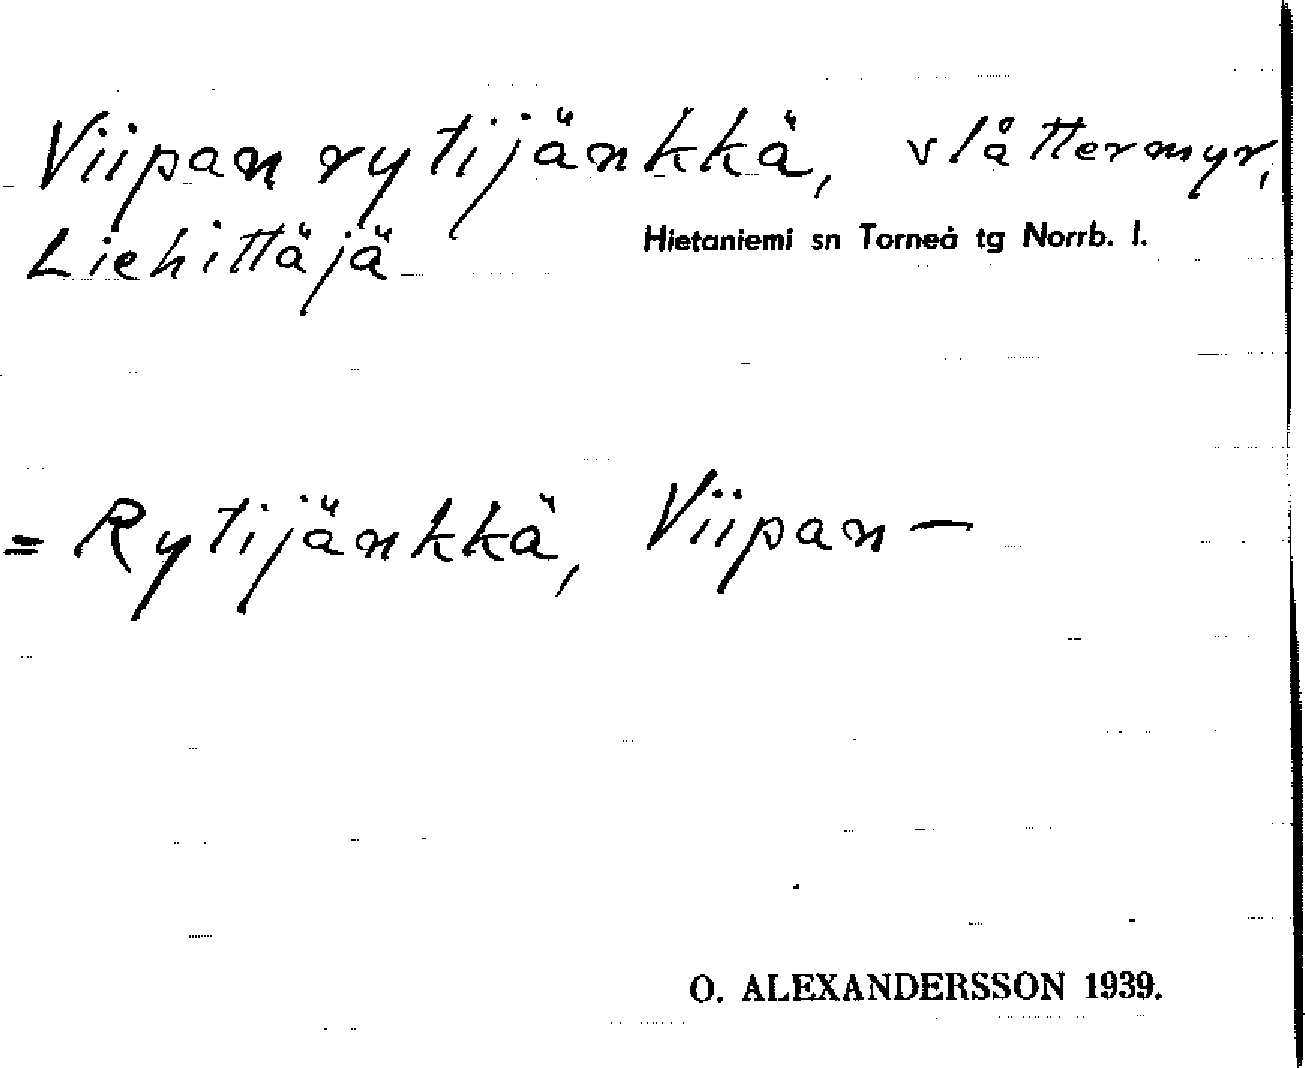 Viipan rytijänkkä, v slåttermyr,
Liehittäjä
Hietaniemi sn Torneå tg Norrb. l.
= Rytijänkkä, Viipan —
O. ALEXANDERSSON 1939.